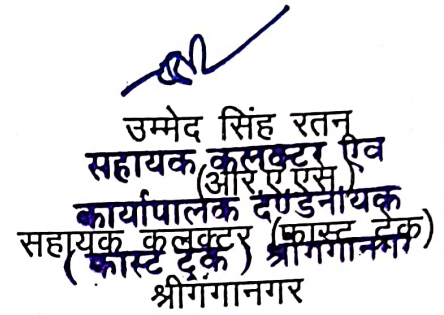 उम्मेद सिंह रतन
सहायक कलक्टर एंव
(आर.ए.एस)
कार्यापालक दण्डनायक
सहायक कलक्टर (फास्ट ट्रेक)
( फास्ट ट्रेक ) श्रीगंगानगर
श्रीगंगानगर